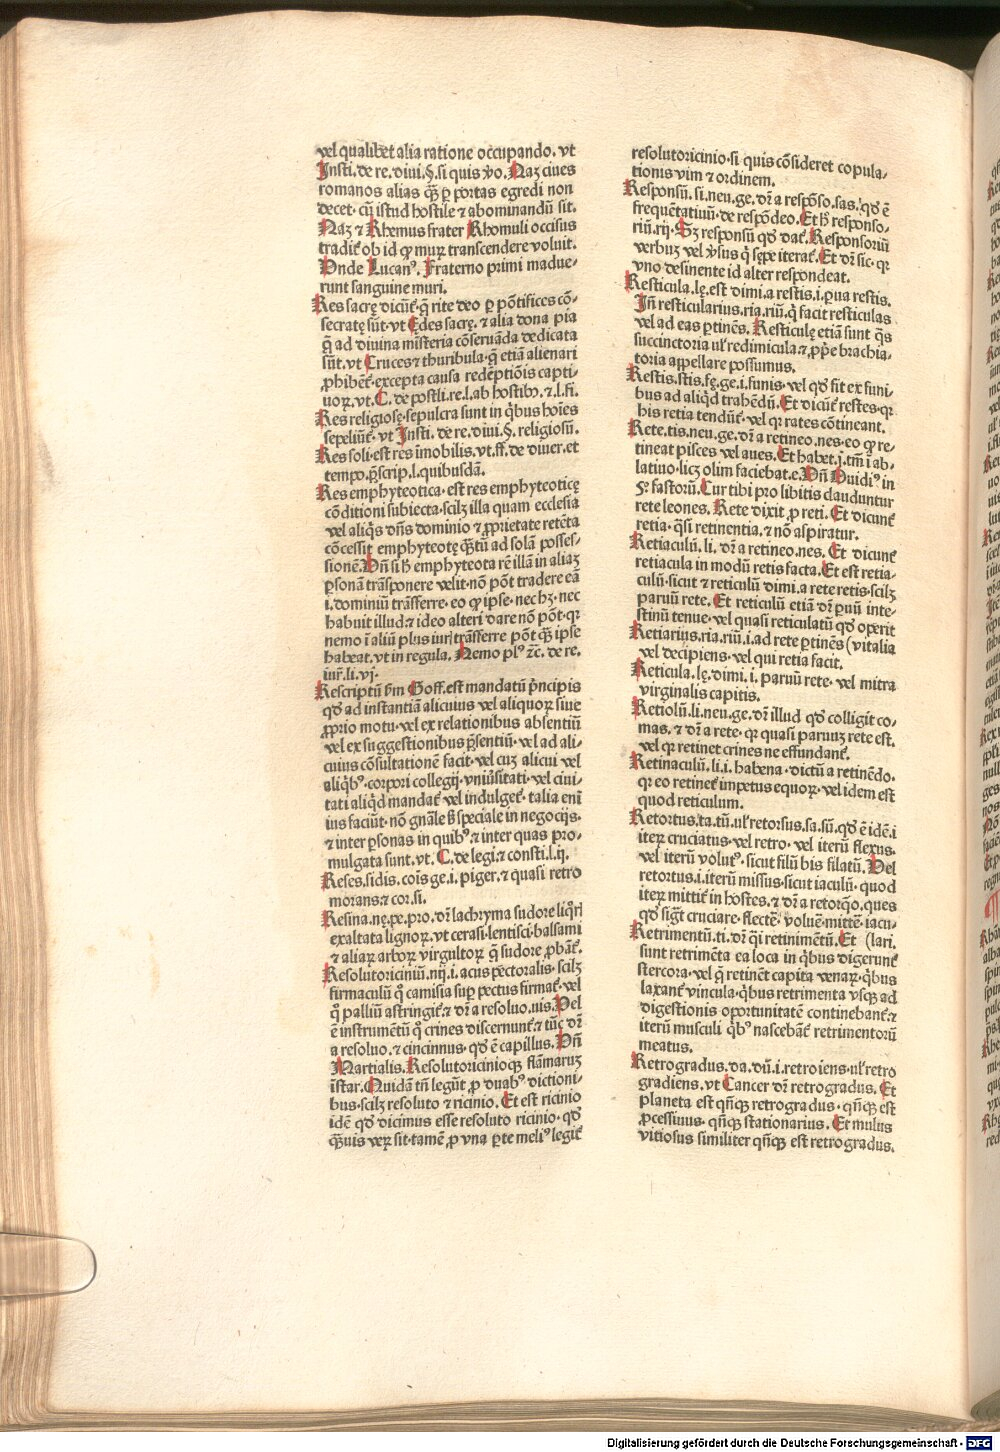 vel qualibet alia ratione occupando. vt
Insti. de re. diui. §. si quis ṽo. Naꝫ ciues
romanos alias q̃ꝫ ꝑ portas egredi non
decet· cũ istud hostile ⁊ abominandũ sit.
Naꝫ ⁊ Rhemus frater Rhomuli occisus
tradit᷑ ob id ꝙ muꝝ transcendere voluit.
Vnde Lucanꝰ. Fraterno primi madue-
runt sanguine muri.
Res sacrę dicũt᷑· q̃ rite deo ꝑ põtifices cõ-
secratę sũt· vt Ędes sacrę. ⁊ alia dona pia
q̃ ad diuina misteria cõseruãda dedicata
sũt. vt Cruces ⁊ thuribula· q̃ etiã alienari
ꝓhibẽt᷑· excepta causa redẽptiõis capti-
uoꝝ. vt. C. de postli. re. l. ab hostibꝰ. ⁊ l. fi.
Res religiosę· sepulcra sunt in q̃bus hoĩes
sepeliũt᷑· vt Insti. de re. diui. §. religiosũ.
Res soli· est res imobilis. vt. ff. de diuer. et
tempo. p̃scrip. l. quibusdã.
Res emphyteotica· est res emphyteoticę
cõditioni subiecta· scilꝫ illa quam ecclesia
vel aliq̃s dñs dominio ⁊ ꝓprietate retẽta
cõcessit emphyteotę q̃ꝫtũ ad solã posses-
sionẽ. Vñ si h̃ emphyteota rẽ illã in aliaꝫ
ꝑsonã trãsponere velit· nõ põt tradere eã
i. dominiũ trãsferre· eo ꝙ ipse· nec hꝫ· nec
habuit illud· ⁊ ideo alteri dare nõ põt· qꝛ
nemo ĩ aliũ plus iur᷑ trãsferre põt q̃ꝫ ipse
habeat. vt in regula. Nemo plꝰ ⁊c̃. de re.
iur᷑. li. vj·
Rescriptũ ẜm Goff. est mandatũ p̃ncipis
qđ ad instantiã alicuius vel aliquoꝝ siue
ꝓprio motu· vel ex relationibus absentiũ
vel ex suggestionibus p̃sentiũ· vel ad ali-
cuius cõsultationẽ facit· vel cuꝫ alicui vel
aliq̃bꝰ· corpori collegij· vniũsitati· vel ciui-
tati aliq̃d mandat᷑ vel indulget᷑· talia eni
ius faciũt· nõ gñale ẞ speciale in negocijs·
⁊ inter ꝑsonas in quibꝰ· ⁊ inter quas pro-
mulgata sunt. vt. C. de legi. ⁊ consti. l. ij.
Reses. sidis. cõis ge. i. piger. ⁊ quasi retro
morans. ⁊ cor. si.
Resina. nę. pe. pro. dr̃ lachryma sudore liq̃ri
exaltata lignoꝝ. vt cerasi· lentisci· balsami
⁊ aliaꝝ arboꝝ virgultoꝝ q̃ sudore ꝓbãt᷑.
Resolutoriciniũ. nij. i. acus pectoralis· scilꝫ
firmaculũ q̃ camisia suꝑ pectus firmat᷑· vel
q̃ palliũ astringit᷑. ⁊ dr̃ a resoluo. uis. Vel
ẽ instrumẽtũ q̃ crines discernunt᷑. ⁊ tũc dr̃
a resoluo. ⁊ cincinnus· qđ ẽ capillus. Vñ
Martialis. Resolutoricinioqꝫ flãmaruꝫ
ĩstar. Quidã tñ legũt ꝓ duabꝰ dictioni-
bus· scilꝫ resoluto ⁊ ricinio. Et est ricinio
idẽ qđ dicimus esse resoluto ricinio· qđ
q̃ꝫuis veꝝ sit· tamẽ ꝓ vna ꝑte meliꝰ legit᷑
resolutoricinio· si quis cõsideret copula-
tionis vim ⁊ ordinem.
Responsũ. si. neu. ge. dr̃ a respõso. sas. qđ ẽ
frequẽtatiuũ· de respõdeo. Et h̃ responso-
riũ. rij. Sꝫ responsũ qđ dat᷑. Responsoriũ
verbuꝫ vel ṽsus q̃ sępe iterat᷑. Et dr̃ sic· qꝛ
vno desinente id alter respondeat.
Resticula. lę. est dimi. a restis. i. ꝑua restis.
Iñ resticularius. ria. riũ. q̃ facit resticulas
vel ad eas ꝑtinẽs. Resticulę etiã sunt q̃s
succinctoria ul᷑ redimicula· ⁊ ꝓp̃e brachia-
toria appellare possumus.
Restis. stis. fę. ge. i. funis· vel qđ fit ex funi-
bus ad aliq̃d trahẽdũ. Et dicũt᷑ restes· qꝛ
his retia tendũt᷑· vel qꝛ rates cõtineant.
Rete. tis. neu. ge. dr̃ a retineo. nes· eo ꝙ re-
tineat pisces vel aues. Et habet. j. tm̃ ĩ ab-
latiuo· licꝫ olim faciebat. e. Vñ Ouidiꝰ in
.v. fastorũ. Cur tibi pro libitis clauduntur
rete leones. Rete dixit ꝓ reti. Et dicunt᷑
retia· q̃si retinentia. ⁊ nõ aspiratur.
Retiaculũ. li. dr̃ a retineo. nes. Et dicunt᷑
retiacula in modũ retis facta. Et est retia-
culũ· sicut ⁊ reticulũ dimi. a rete retis· scilꝫ
paruũ rete. Et reticulũ etiã dr̃ ꝑuũ inte-
stinũ tenue· vel quasi reticulatũ qđ operit
Retiarius. ria. riũ. i. ad rete ꝑtinẽs (vitalia
vel decipiens· vel qui retia facit.
Reticula. lę. dimi. i. paruũ rete· vel mitra
virginalis capitis.
Retiolũ. li. neu. ge. dr̃ illud qđ colligit co-
mas. ⁊ dr̃ a rete· qꝛ quasi paruuꝫ rete est.
vel qꝛ retinet crines ne effundant᷑.
Retinaculũ. li. i. habena· dictũ a retinẽdo·
qꝛ eo retinet᷑ impetus equoꝝ· vel idem est
quod reticulum.
Retortus. ta. tũ. ul᷑ retorsus. sa. sũ. qđ ẽ idẽ. i
iteꝝ cruciatus· vel retro· vel iterũ flexus.
vel iterũ volutꝰ· sicut filũ bis filatũ. Vel
retortus. i. iterũ missus· sicut iaculũ· quod
iteꝝ mittit᷑ in hostes. ⁊ dr̃ a retorq̃o. ques
qđ sigt᷑ cruciare· flectẽ· voluẽ· mittẽ· iacu-
Retrimentũ. ti. dr̃ q̃i retinimẽtũ. Et (lari.
sunt retrimẽta ea loca in q̃bus digerunt᷑
stercora· vel q̃ retinẽt capita venaꝝ· q̃bus
laxant᷑ vincula· q̃bus retrimenta vsqꝫ ad
digestionis oportunitatẽ continebant᷑. ⁊
iterũ musculi q̃bꝰ nascebãt᷑ retrimentorũ
meatus.
Retrogradus. da. dũ. i. retro iens· ul᷑ retro
gradiens. vt Cancer dr̃ retrogradus. Et
planeta est qñqꝫ retrogradus· qñqꝫ est
ꝓcessiuus· qñqꝫ stationarius. Et mulus
vitiosus similiter qñqꝫ est retrogradus.
Digitalisierung gefördert durch die Deutsche Forschungsgemeinschaft - DFG